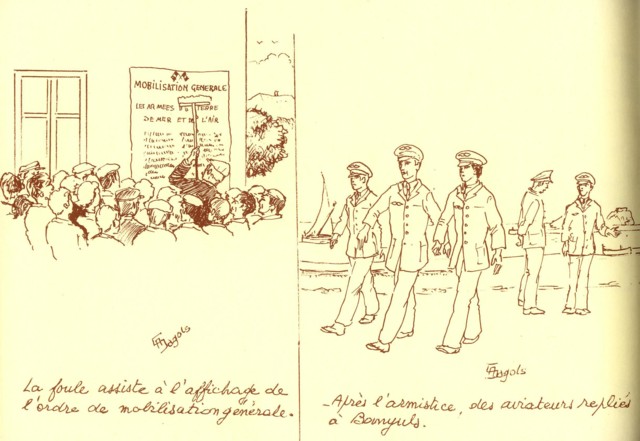 MOBILISATION GENERALE
LES ARMÉES DE TERRE
DE MER ET DE L'AIR
Angols
La foule assiste à l'affichage de
l'ordre de mobilisation générale.
Angols
- Après l'armistice, des aviateurs repliés
à Banyuls.